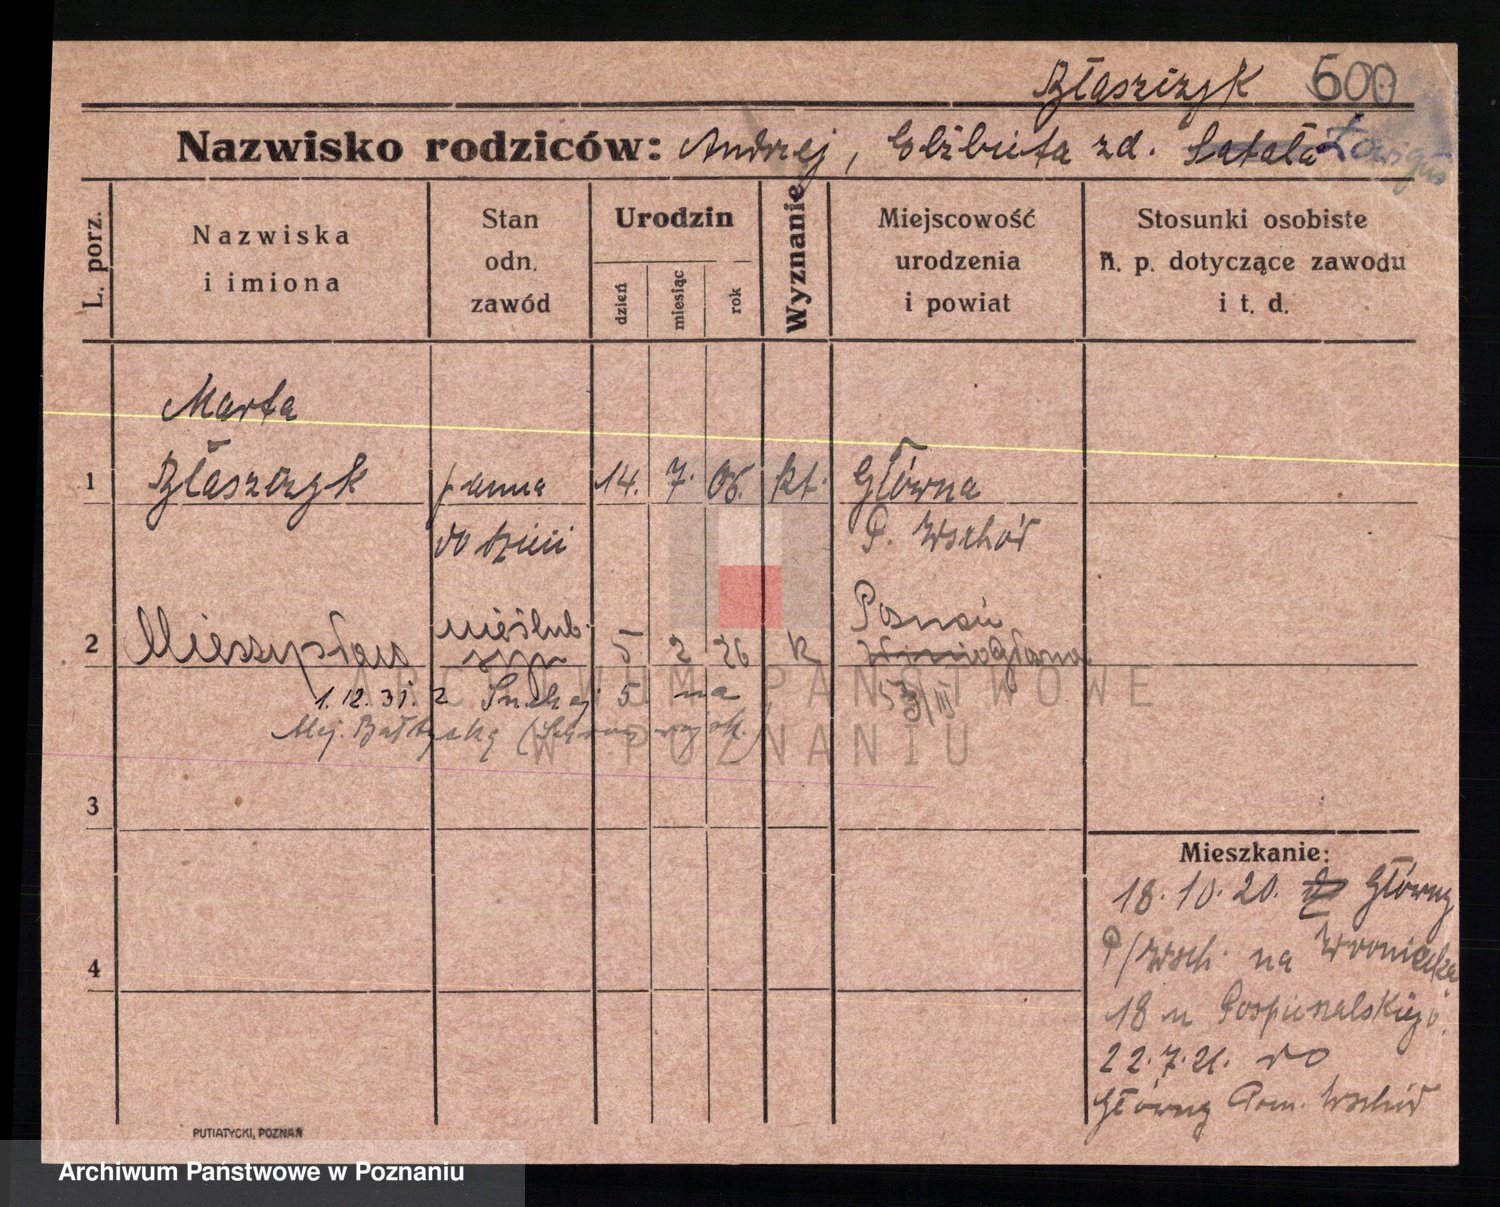 Błaszczyk 600
Nazwisko rodziców: Andrzej, Elżbieta zd. Satała
L. porz.
Nazwiska i imiona
Stan odn. zawód
Urodzin
dzień
miesiąc
rok
Wyznanie
Miejscowość urodzenia i powiat
Stosunki osobiste n. p. dotyczące zawodu i t. d.
Marta
1 Błaszczyk panna 14. 7. 06. kt. Główna
do dzieci P. Wschód
nieślub. Poznań
2 Mieczysław syn 5 2 26 k
1.12.31. z 5 na
3
ARCHIWUM PAŃSTWOWE
W POZNANIU
Mieszkanie:
18.10.20. Z Główny
P/Wsch. na Wroniecka
18 u Pospieszalskiego.
4
22.7.21. do
Główny Pozn. Wschód
PUTIATYCKI, POZNAŃ
Archiwum Państwowe w Poznaniu